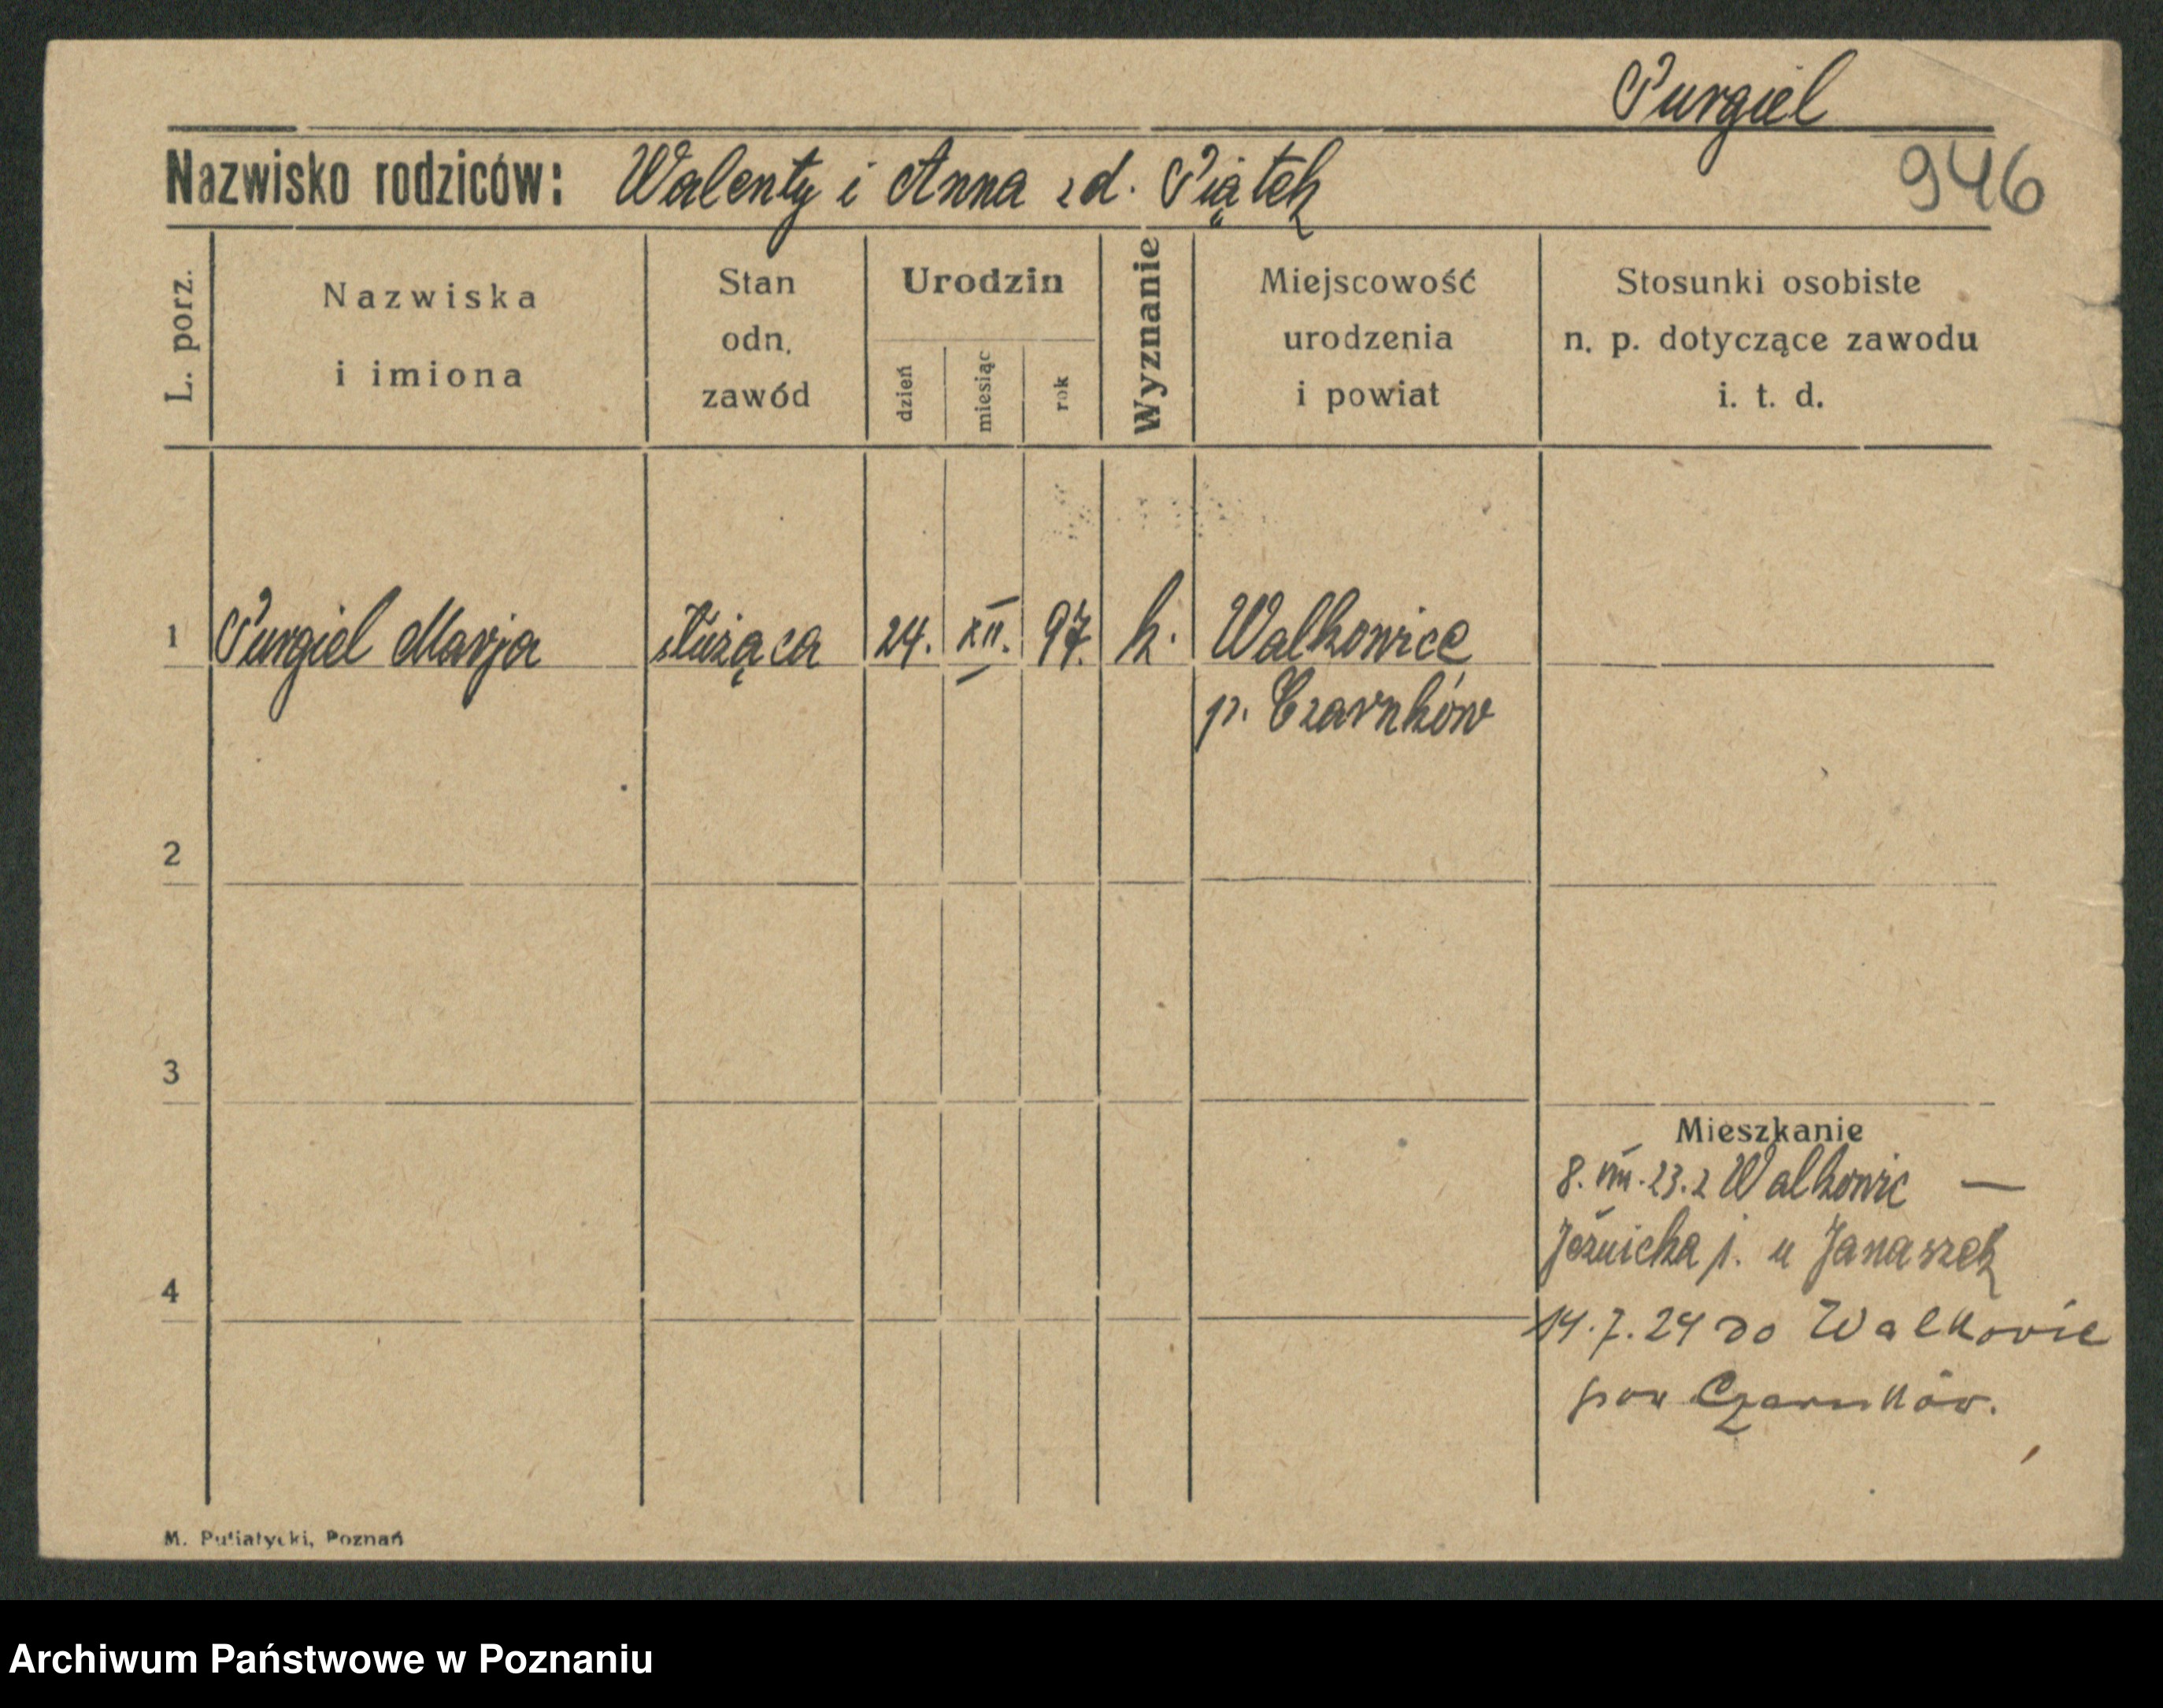 Purgiel
Nazwisko rodziców: Walenty i Anna zd. Piątek
946
L. porz.
Nazwiska
i imiona
Stan
odn.
zawód
Urodzin
dzień
miesiąc
rok
Wyznanie
Miejscowość
urodzenia
i powiat
Stosunki osobiste
n. p. dotyczące zawodu
i. t. d.
1 Purgiel Marja służąca 24. XII. 97. k. Walkowice
p. Czarnków
2
3
Mieszkanie
8. VIII. 23. z Walkowic —
u Janaszek
4
14.7.24 do Walkovic
pow Czarnków.
M. Putiatycki, Poznań
Archiwum Państwowe w Poznaniu